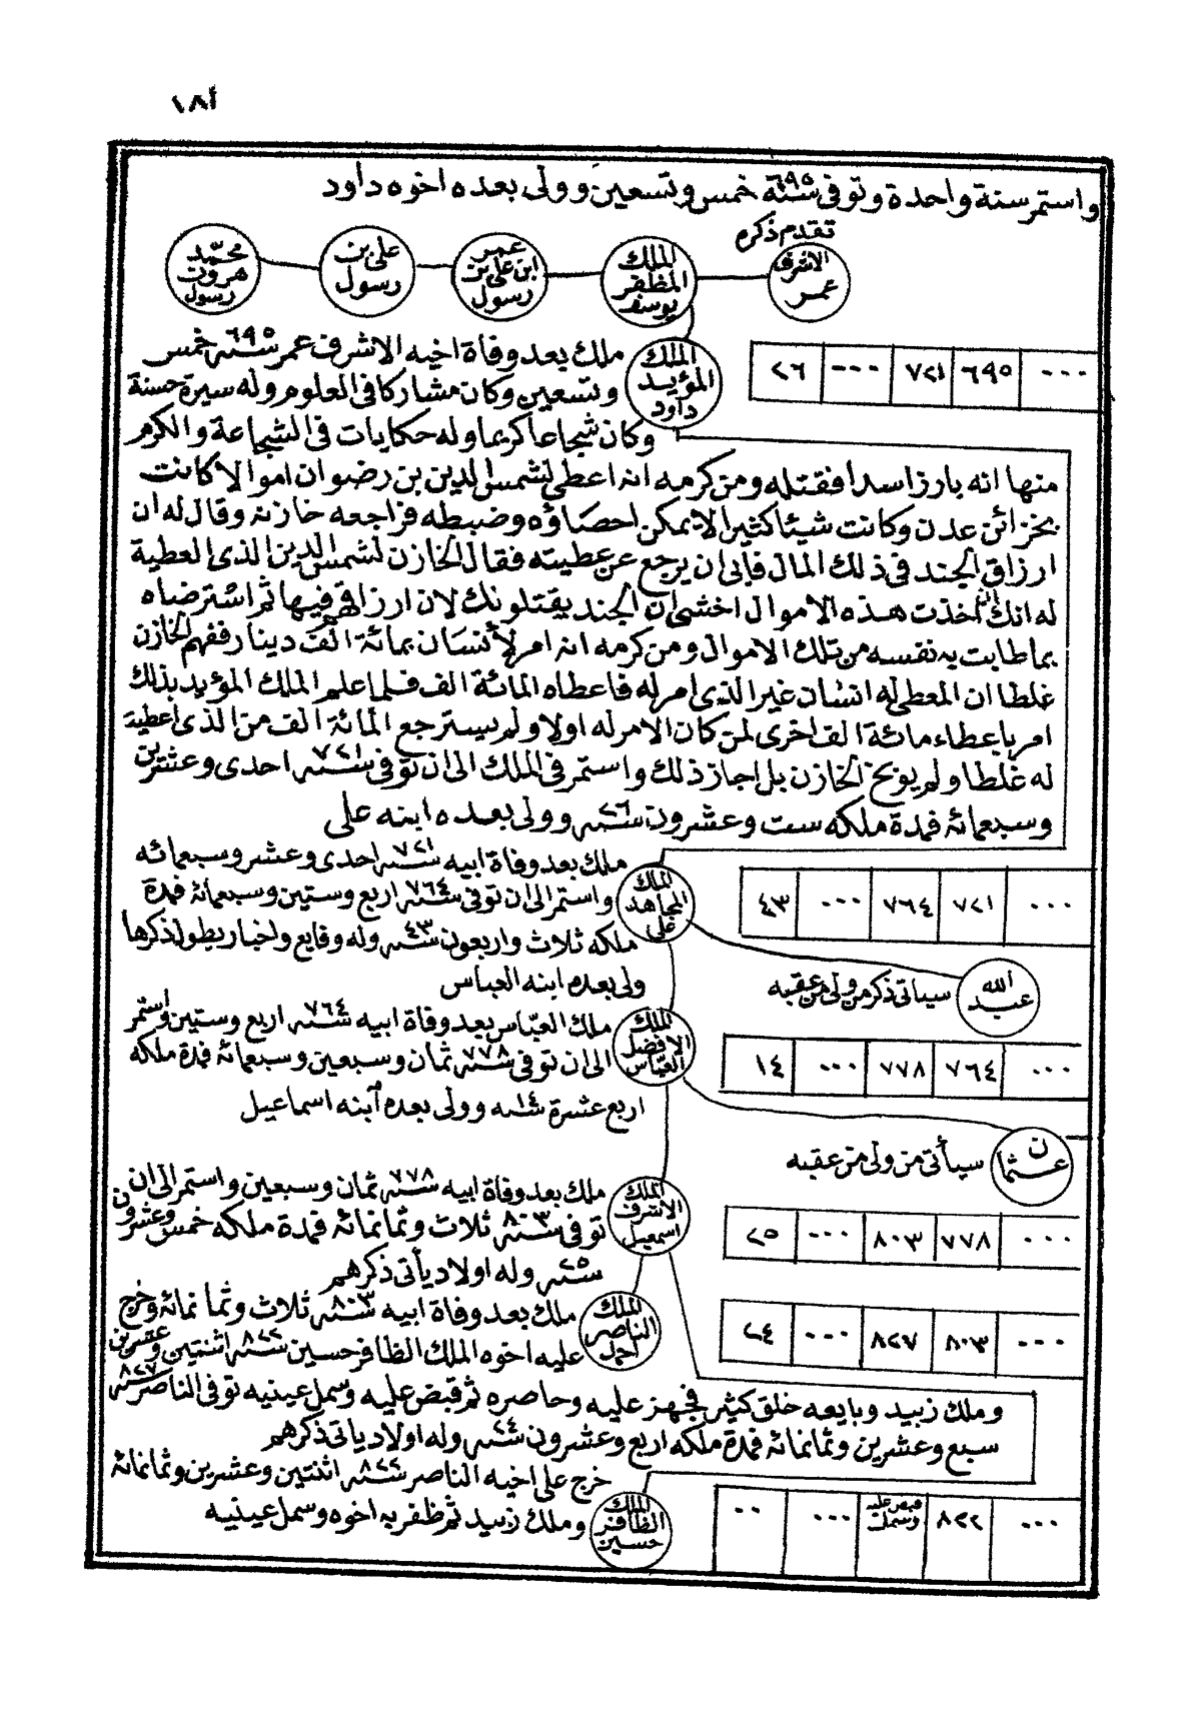 ١٨أ
واستمر سنة واحدة وتوفى سنة ٦٩٥ خمس وتسعين وولى بعده اخوه داود
تقدم ذكره
الاشرف عمر
الملك المظفر يوسف
عمر ابن على بن رسول
على بن رسول
محمد هرون رسول
٠٠٠ ٦٩٥ ٧٢١ ٠٠٠ ٢٦
الملك المؤيد داود
ملك بعد وفاة اخيه الاشرف عمر سنة ٦٩٥ خمس
وتسعين وكان مشاركا فى العلوم وله سيرة حسنة
وكان شجاعا كريما وله حكايات فى الشجاعة والكرم
منها انه بارز اسدا فقتله ومن كرمه انه اعطى لشمس الدين بن رضوان اموالا كانت
بخزائن عدن وكانت شيئا كثيرا لا يمكن احصاؤه وضبطه فراجعه خازنه وقال له ان
ارزاق الجند فى ذلك المال فابى ان يرجع عن عطيته فقال الخازن لشمس الدين الذى العطية
له انك ان اخذت هذه الاموال اخشى ان الجند يقتلونك لان ارزاقهم فيها ثم استرضاه
بما طابت به نفسه من تلك الاموال ومن كرمه انه امر لأنسان بمائة الف دينار ففهم الخازن
غلطا ان المعطى له انسان غير الذى امر له فاعطاه المائة الف فلما علم الملك المؤيد بذلك
امر باعطاء مائة الف اخرى لمن كان الامر له اولا ولم يسترجع المائة الف من الذى اعطيت
له غلطا ولم يوبخ الخازن بل اجاز ذلك واستمر فى الملك الى ان توفى سنة ٧٢١ احدى وعشرين
وسبعمائة فمدة ملكه ست وعشرون سنة ٢٦ وولى بعده ابنه على
٠٠٠ ٧٢١ ٧٦٤ ٠٠٠ ٤٣
الملك المجاهد على
ملك بعد وفاة ابيه سنة ٧٢١ احدى وعشر وسبعمائه
واستمر الى ان توفى سنة ٧٦٤ اربع وستين وسبعمائة فمدة
ملكه ثلاث واربعون سنة ٤٣ وله وقايع واخبار يطول ذكرها
ولى بعده ابنه العباس
عبد الله
سياتى ذكر من ولى من عقبه
٠٠٠ ٧٦٤ ٧٧٨ ٠٠٠ ١٤
الملك الافضل العباس
ملك العباس بعد وفاة ابيه سنة ٧٦٤ اربع وستين واستمر
الى ان توفى سنة ٧٧٨ ثمان وسبعين وسبعمائة فمدة ملكه
اربع عشرة سنة ١٤ وولى بعده ابنه اسماعيل
عثمان
سيأتى من ولى من عقبه
٠٠٠ ٧٧٨ ٨٠٣ ٠٠٠ ٢٥
الملك الاشرف اسمعيل
ملك بعد وفاة ابيه سنة ٧٧٨ ثمان وسبعين واستمر الى ان
توفى سنة ٨٠٣ ثلاث وثمانمائة فمدة ملكه خمس وعشرون
سنة ٢٥ وله اولاد يأتى ذكرهم
٠٠٠ ٨٠٣ ٨٢٧ ٠٠٠ ٢٤
الملك الناصر احمد
ملك بعد وفاة ابيه سنة ٨٠٣ ثلاث وثمانمائة وخرج
عليه اخوه الملك الظافر حسين سنة ٨٢٢ اثنتين وعشرين
وملك زبيد وبايعه خلق كثير فجهز عليه وحاصره ثم قبض عليه وسمل عينيه توفى الناصر سنة ٨٢٧
سبع وعشرين وثمانمائة فمدة ملكه اربع وعشرون سنة ٢٤ وله اولاد ياتى ذكرهم
٠٠٠ ٨٢٢ قبض عليه وسملت ٠٠٠ ٠٠
الملك الظافر حسين
خرج على اخيه الناصر سنة ٨٢٢ اثنتين وعشرين وثمانمائة
وملك زبيد ثم ظفر به اخوه وسمل عينيه